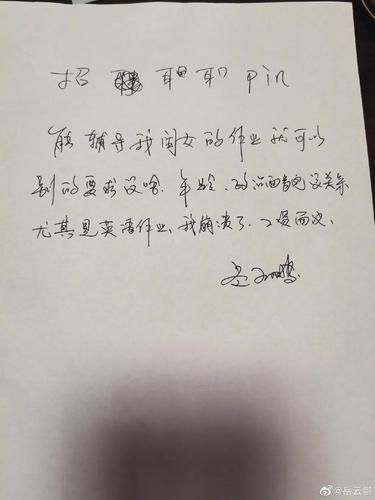 招 pin
能辅导我闺女的作业就可以
别的要求没啥.年龄.政治面貌没关系
尤其是英语作业、我崩溃了.工资面议.
岳云鹏
@岳云鹏